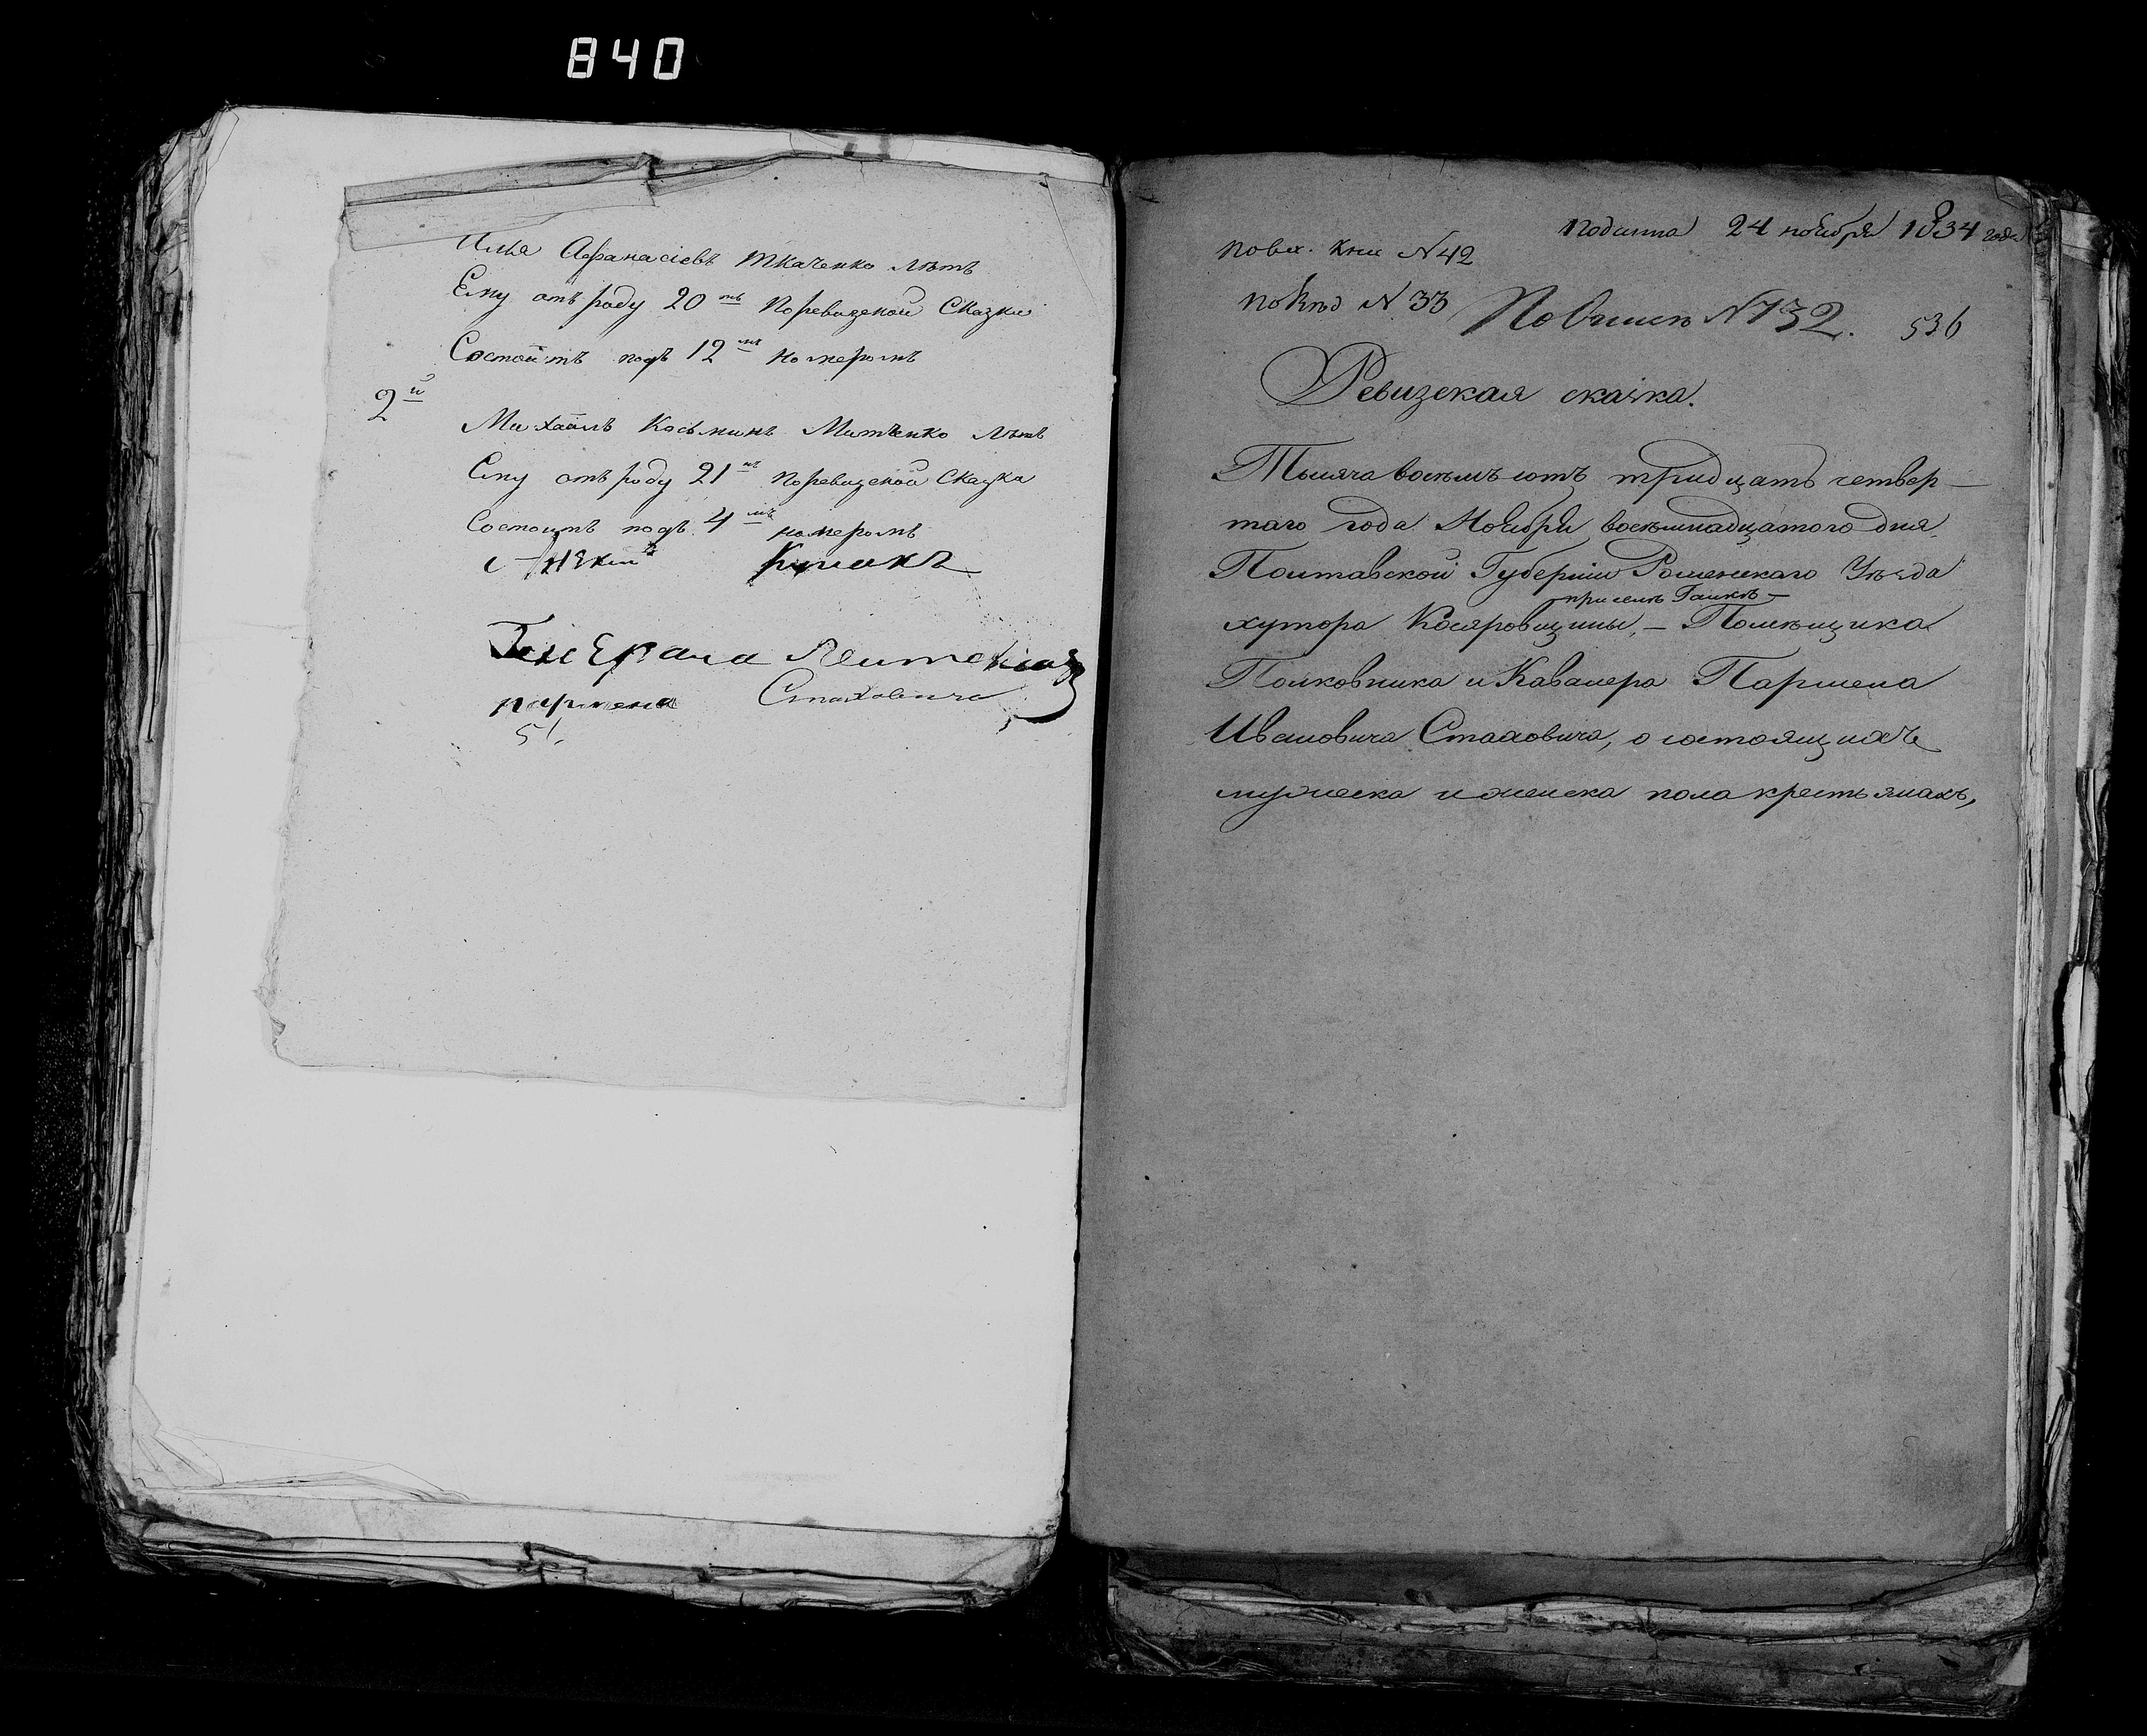 840
Илья Афанасіевъ Ткаченко лѣтъ
Ему отъ роду 20тъ поревизской Сказки
Состоитъ подъ 12мъ номеромъ
2й
Михаилъ Косьминъ Митченко лѣтъ
Ему отъ роду 21нъ поревизской Сказки
Состоитъ подъ 4мъ номеромъ
Генерала
пармена Стаховича
51.
подашна 24 ноября 1834 года
по вх. кни N 42
N 33
N 132.
536
Ревизская сказка.
Тысяча восемь сотъ тридцать четвер-
таго года Ноября восемнадцатого дня
Полтавской Губерніи Роменскаго Уѣзда
при селѣ
хутора – Помѣщика
Полковника и Кавалера Пармена
Ивановича Стаховича, о состоящихъ
мужеска и женска пола крестьянахъ,